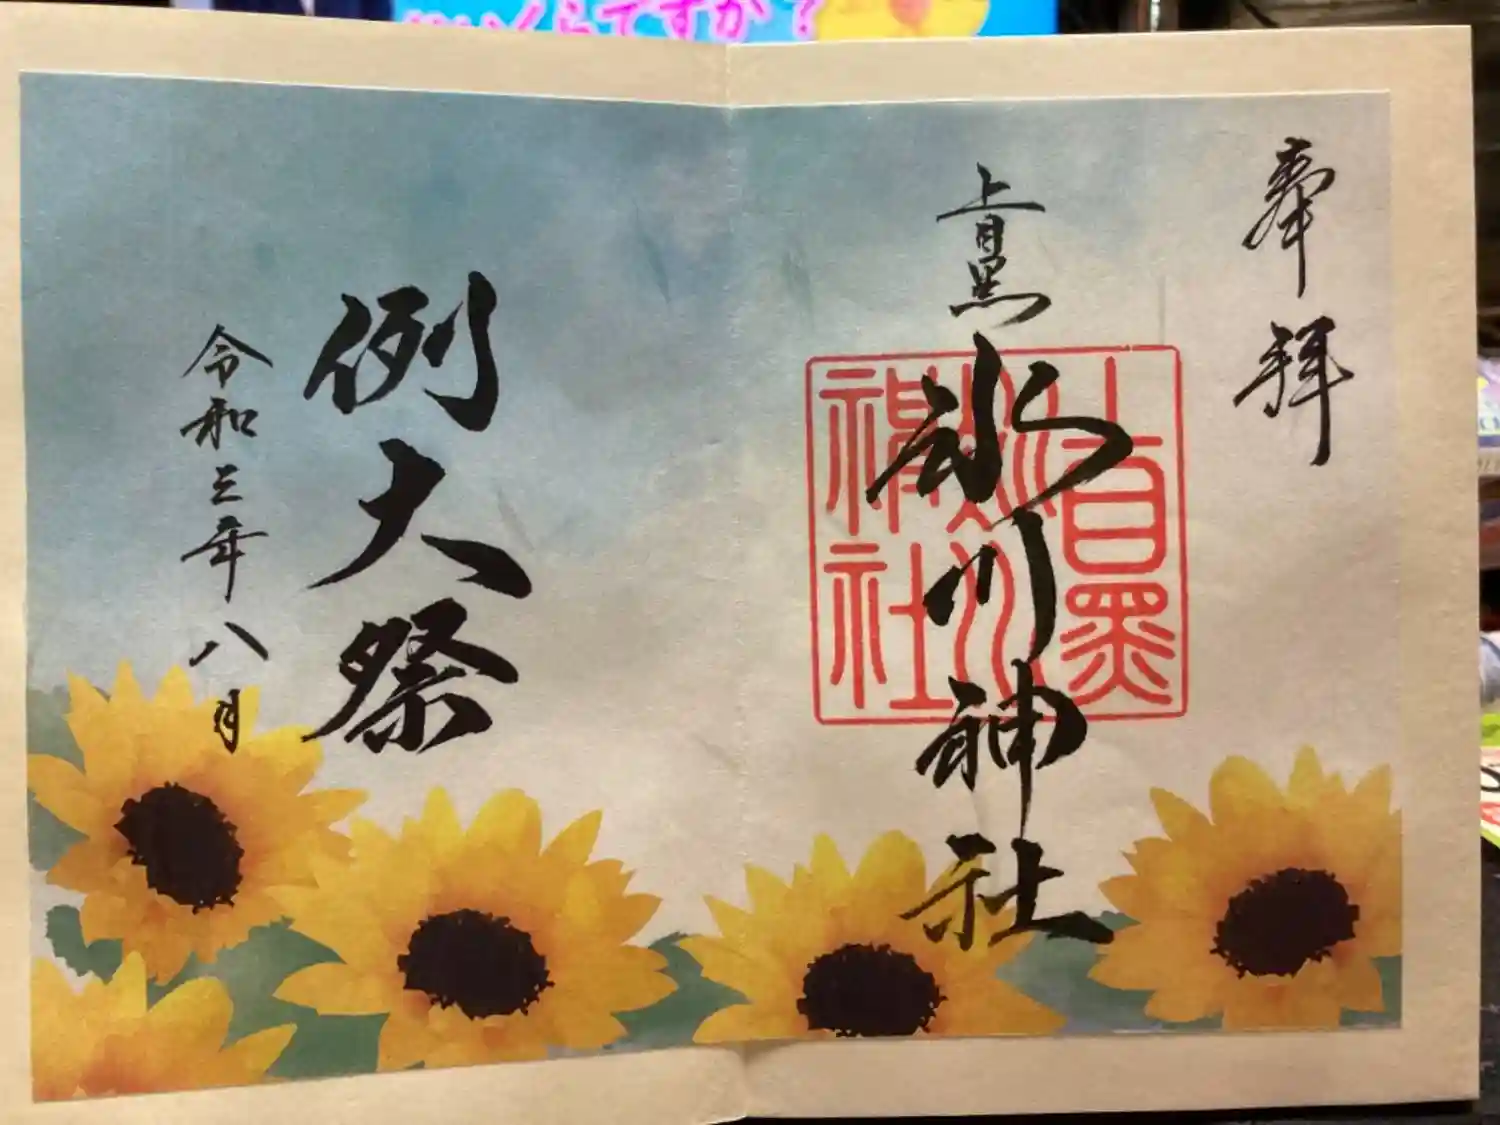 いくらですか?
奉拝
上目黒
氷川神社
上目黒
氷川
神社
例大祭
令和三年八月